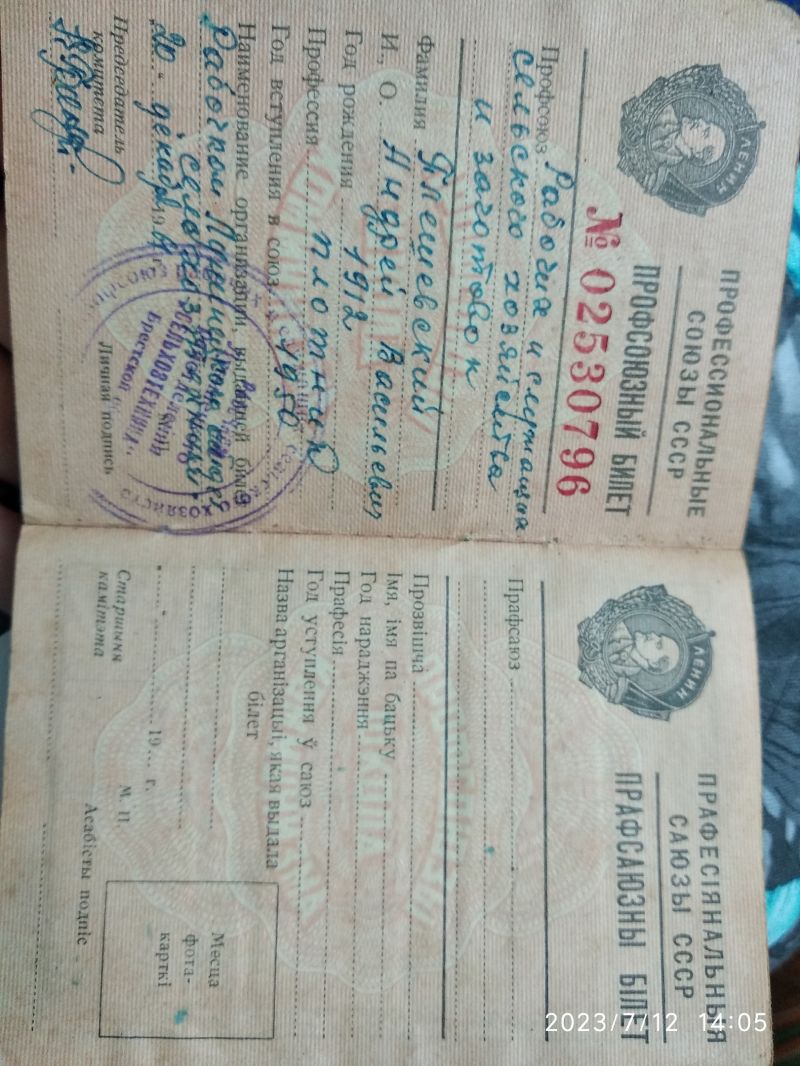 ЛЕНИН
ПРОФЕССИОНАЛЬНЫЕ
СОЮЗЫ СССР
ПРОФСОЮЗНЫЙ БИЛЕТ
№ 02530796
Профсоюз Рабочих и служащих
сельского хозяйства
и заготовок
Фамилия Плешевский
И., О. Андрей Васильевич
Год рождения 1912
Профессия плотник
Год вступления в союз 1950
Наименование организации, выдавшей билет
Рабочком
20 " декабря 19
Председатель
комитета
Личная подпись
Брестской
ЛЕНИН
ПРАФЕСІЯНАЛЬНЫЯ
САЮЗЫ СССР
ПРАФСАЮЗНЫ БІЛЕТ
Прафсаюз
Прозвішча
Імя, імя па бацьку
Год нараджэння
Прафесія
Год уступлення ў саюз
Назва арганізацыі, якая выдала
білет
" " 19 г.
Старшыня
камітэта
М. П.
Асабісты подпіс
Месца
фота-
карткі
2023/7/12 14:05